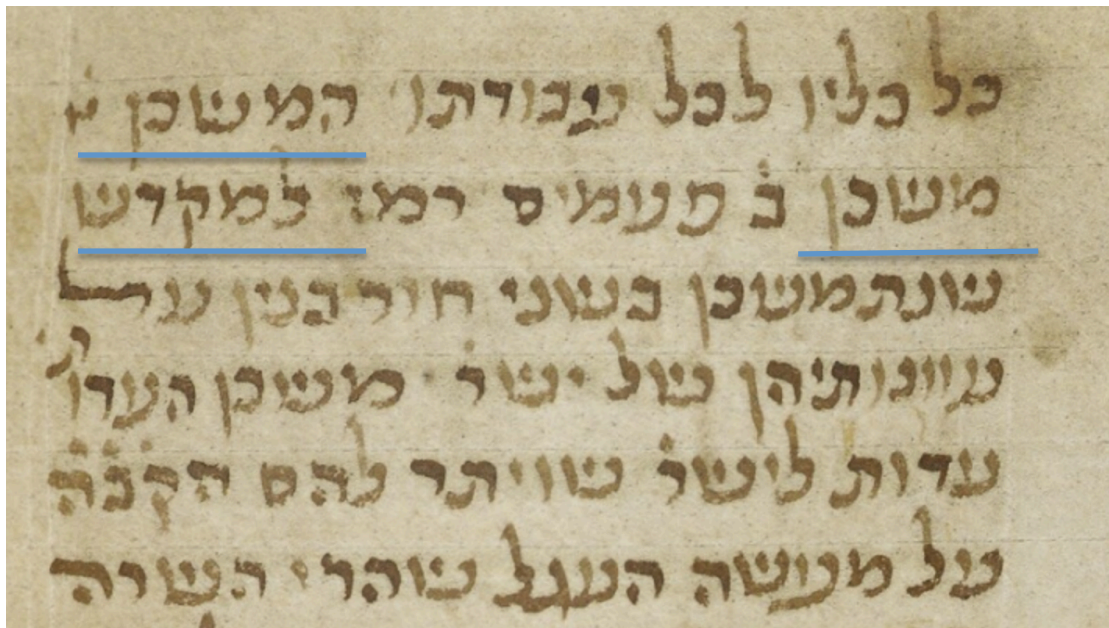 כל כליו לכל עבודתו המשכן
משכן ב׳ פעמים רמז למקדש
שנתמשכן בשני חורבנין על
עוונותיהן של ישר׳ משכן העדות
עדות לישר׳ שויתר להם הקבה
על מעשה העגל שהרי השרה